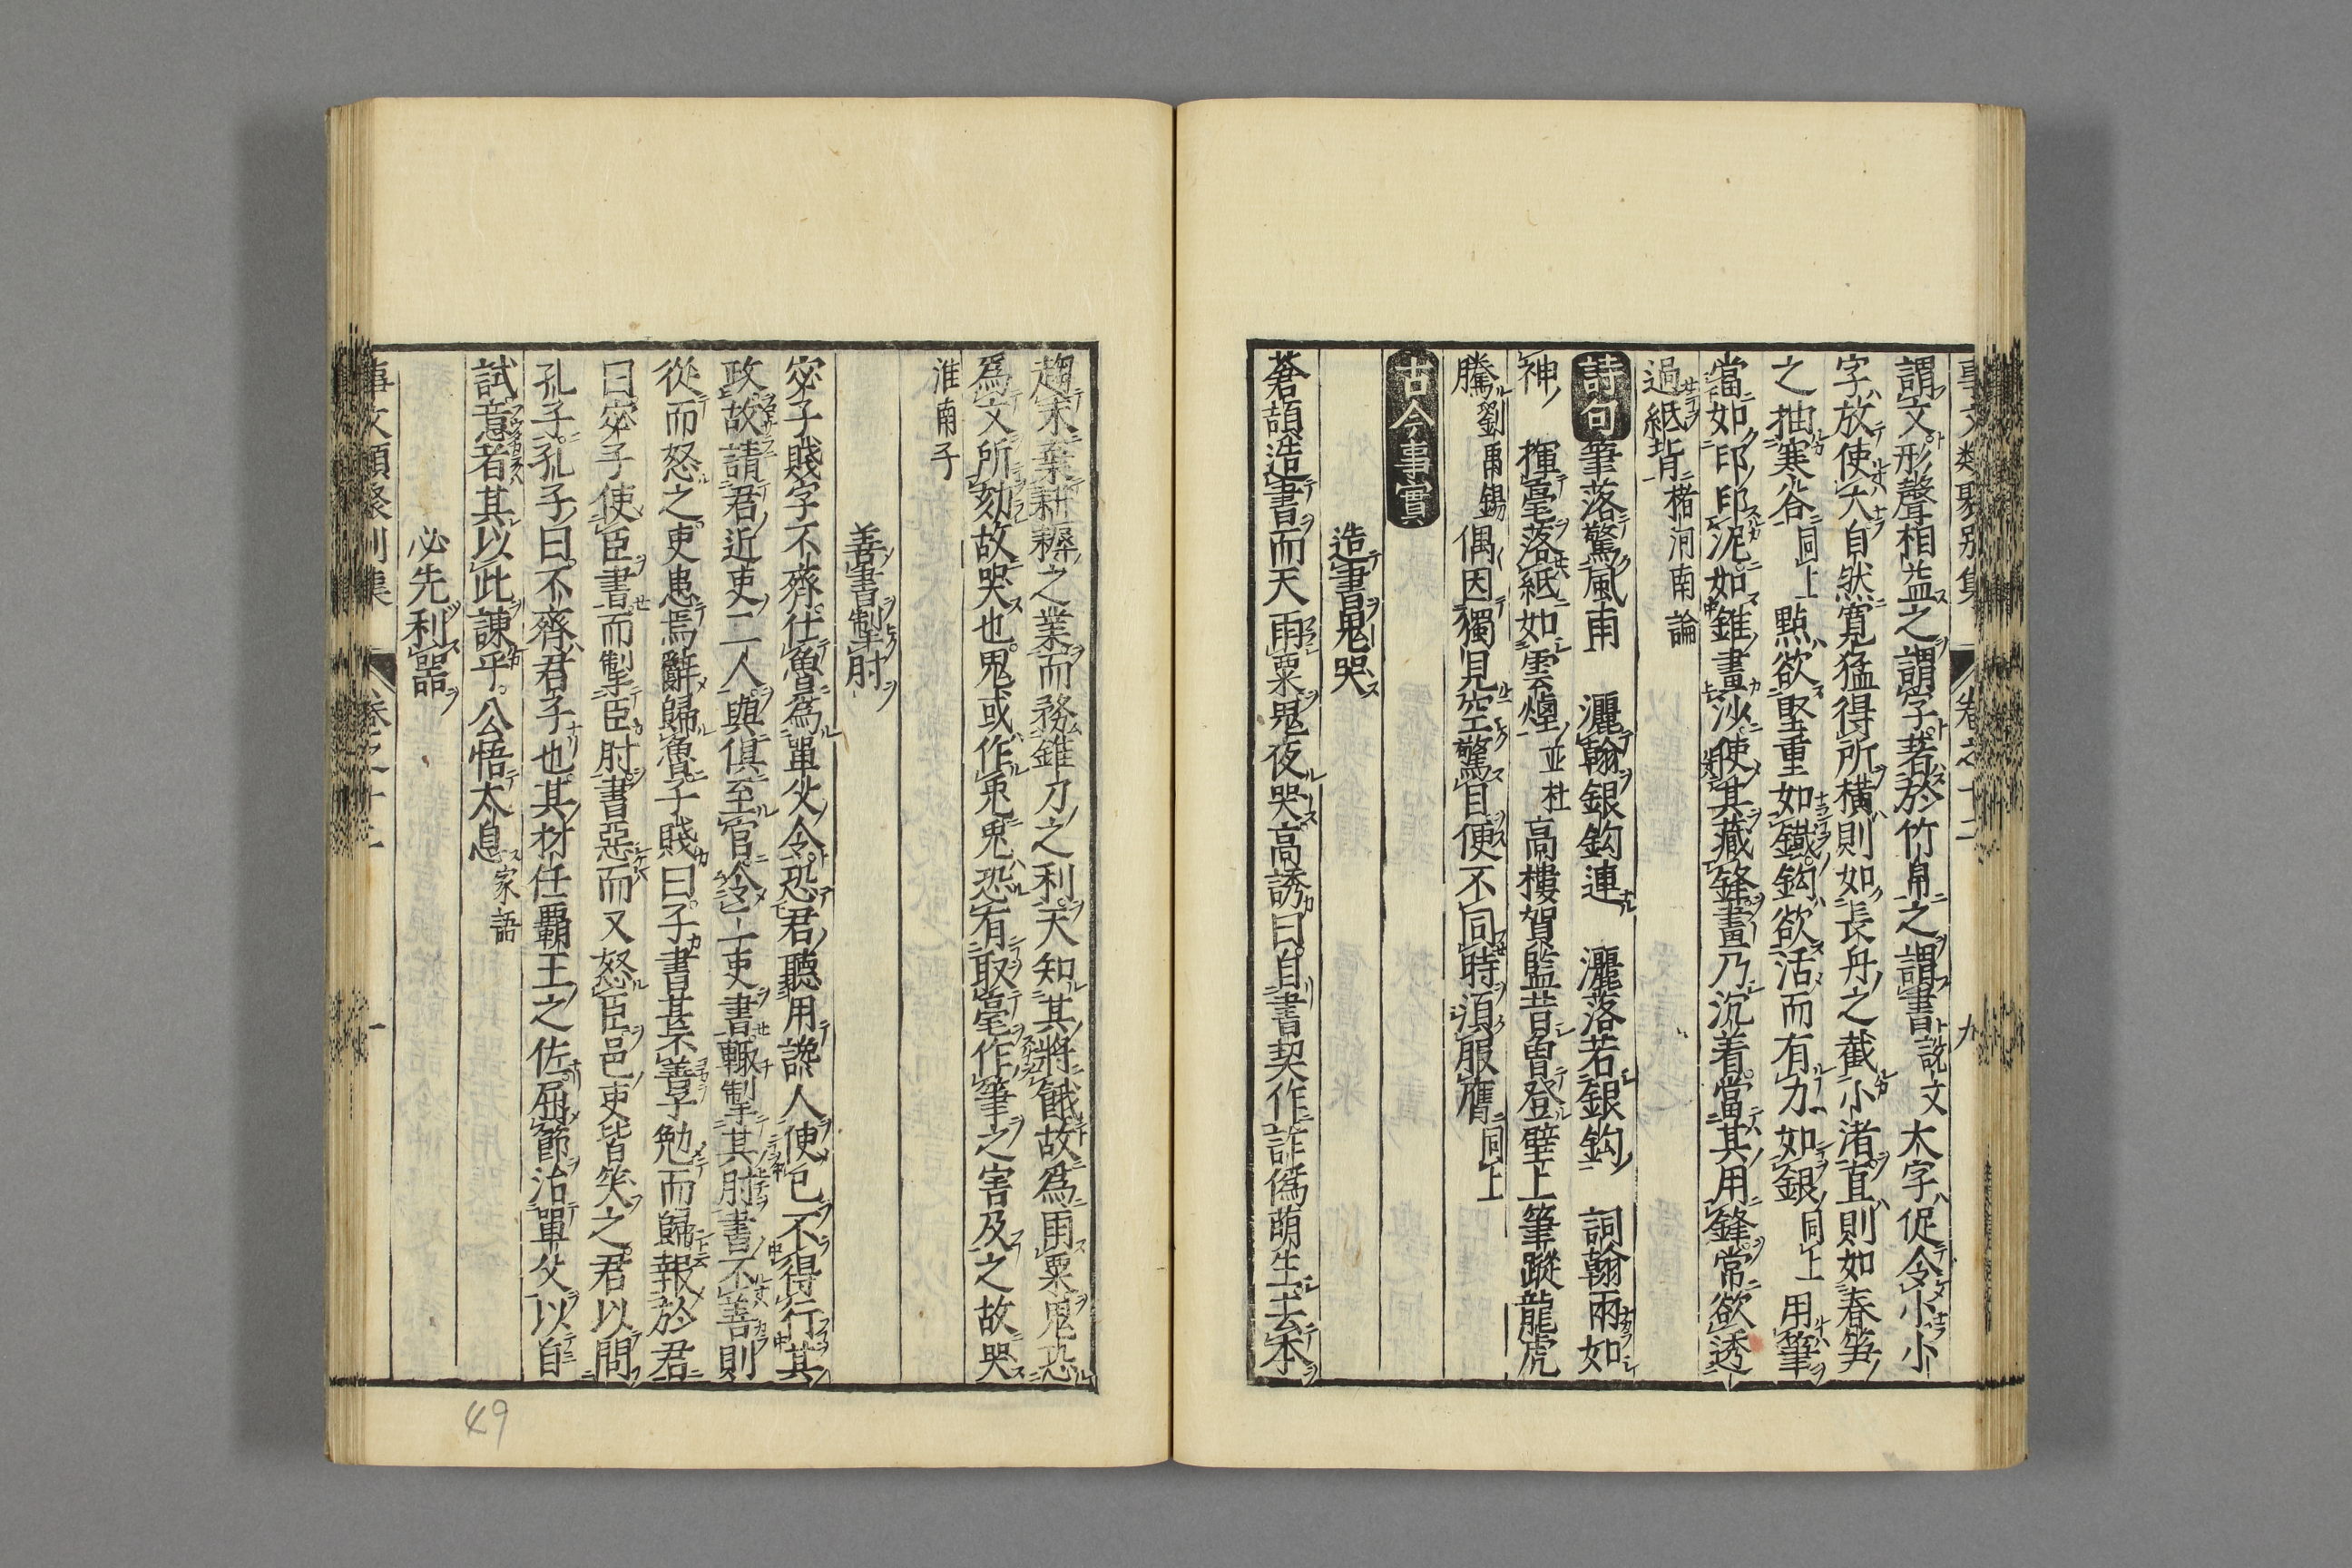 事文類聚別集 卷之十二 九
謂文形聲相益之謂字著於竹帛之謂書說文大字促令小小
字放使大自然寬猛得所橫則如長舟之截小渚直則如春筍
之抽寒谷同上點欲堅重如鐵鈎欲活而有力如銀同上用筆
當如印印泥如錐畫沙使其藏鋒畫乃沉着當其用鋒常欲透
過紙背楮河南論
詩句筆落驚風雨 灑翰銀鈎連 灑落若銀鈎 詞翰兩如
神 揮毫落紙如雲煙並杜高樓賀監昔曾登壁上筆蹤龍虎
騰劉禹錫偶因獨見空驚目便不同時須服膺同上
古今事實
造書鬼哭
蒼頡造書而天雨粟鬼夜哭高誘曰自書契作詐僞萌生去本
趨末棄耕耨之業而務錐刀之利天知其將餓故為雨粟鬼恐
為文所劾故哭也鬼或作兎兎恐有取毫作筆之害及之故哭
淮南子
善書掣肘
宓子賤字不齊仕魯為單父令恐君聽用讒人使已不得行其
政故請君近吏二人與俱至官令二吏書輙掣其肘書不善則
從而怒之吏患焉辭歸魯子賤曰子書甚不善子勉而歸報於君
曰宓子使臣書而掣臣肘書惡而又怒臣邑吏皆笑之君以問
孔子孔子曰不齊君子也其材任霸王之佐屈節治單父以自
試意者其以此諫乎公悟太息家語
必先利噐
事文類聚別集 卷之十二
49